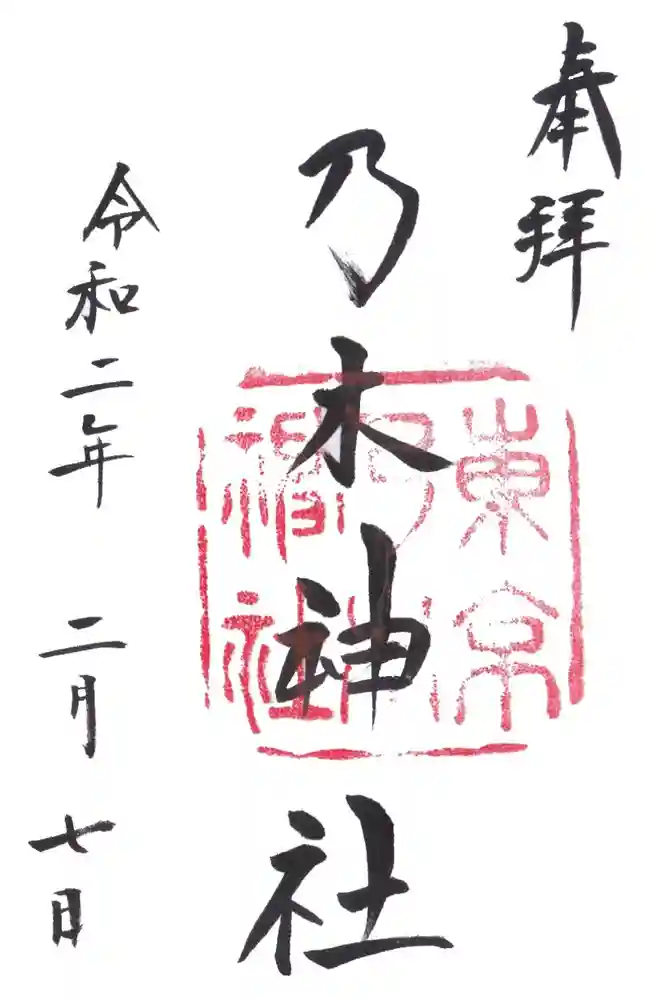 奉拝
乃木神社
東京
乃木
神社
令和二年 二月 七日